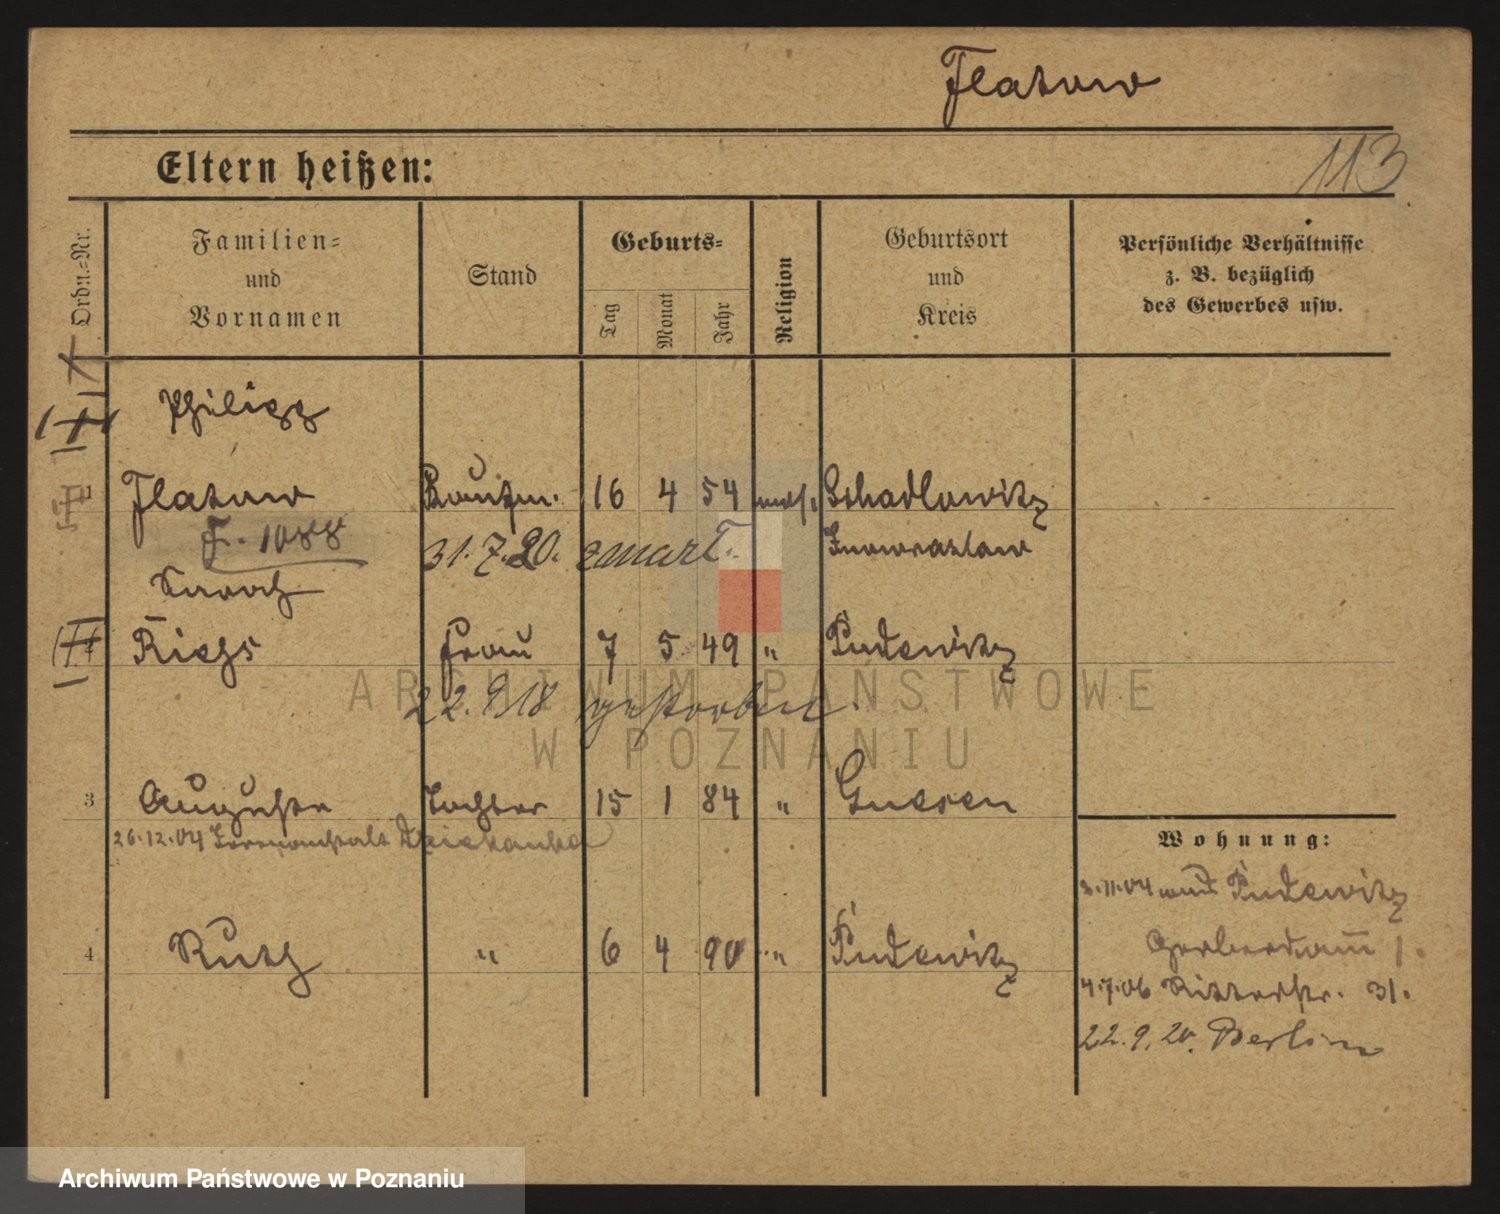 Flatow
113
Eltern heißen:
Ordn.-Nr.
Familien-
und
Vornamen
Stand
Geburts-
Tag
Monat
Jahr
Religion
Geburtsort
und
Kreis
Persönliche Verhältnisse
z. B. bezüglich
des Gewerbes usw.
Philipp
Flatow Kaufm. 16 4 54 mos. Schadlowitz
31.7.20. Inowrazlaw
Frau 7 5 49 " Pudewitz
22.9.18 gestorben.
3 Auguste Tochter 15 1 84 " Gnesen
26.12.04 Irrenanstalt Dziekanka
4 Ruth " 6 4 90 " Pudewitz
Wohnung:
11.04 Pudewitz
Gerberdamm 1.
4.7.06 Ritterstr. 31.
22.9.20. Berlin
ARCHIWUM PAŃSTWOWE
W POZNANIU
Archiwum Państwowe w Poznaniu